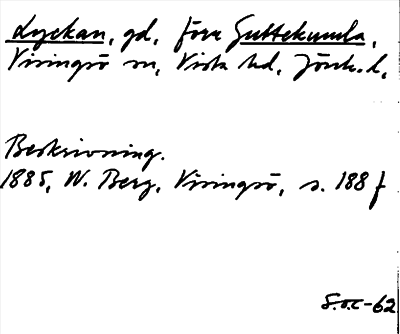 Lyckan, gd, förr Guttekumla,
Visingsö sn, Vista hd, Jönk. l,
Beskrivning.
1885, W. Berg, Visingsö, s. 188 f
S.O.C-62